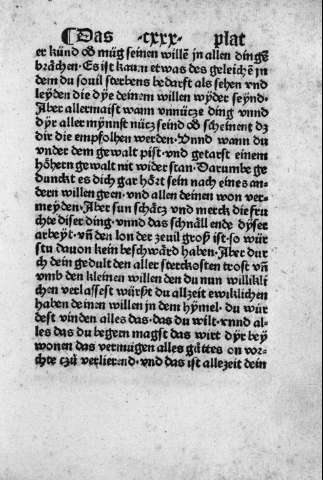 ¶Das ·cxxx· plat
er künd oß müg seinen willē jn allen dingē
brächen·Es ist kaum etwas des geleichē in
dem du souil sterbens bedarfst als sehen vnd
leyden die dye deinem willen wyder seynd·
Aber allermaist wann vnnücze ding vnnd
dyr aller mynnst nücz seind oß scheinent dz
dir die empfolhen werden·Vnnd wann du
vnder dem gewalt pist·vnd getarst einem
höhern gewalt nit widerstan·Darumbe ge
dunckt es dich gar hört sein nach eines an
dern willen geen·vnd allen deinen won ver
meyden·Aber sun schätz vnd merck die fru
chte diser ding·vnnd das schnäll ende dyser
arbeyt·vn̄ den lon der zeuil groß ist·so wür
stu dauon kein beschwärd haben·Aber dur
ch dein gedult den aller sterckosten trost vn̄
vmb den kleinen willen den du nun willikli
chen verlassest würst du allzeit ewiklichen
haben deinen willen jn dem hymel·du wür
dest vinden alles das·das du wilt·vnnd al-
les das du begern magst das wirt dyr bey
wonen das vermügen alles gůttes on vor-
chte czů verlierend·vnd das ist allezeit dein